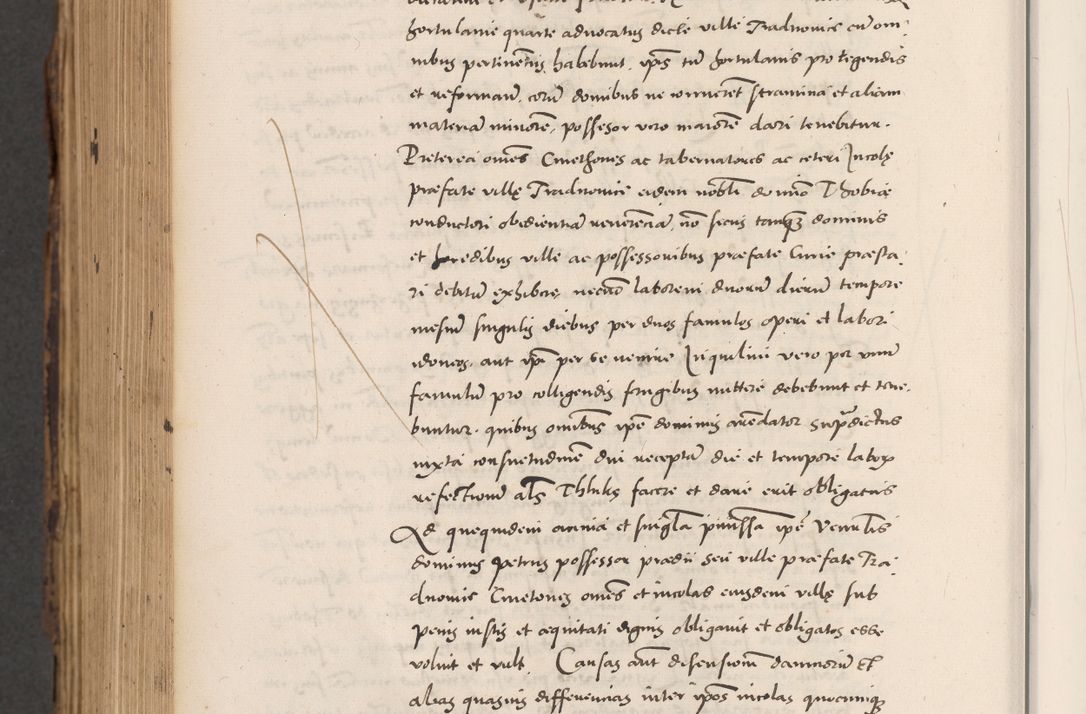 hortulanie quarte advocatus dicte ville Tradnovice cu om,
nibus pertinentiis habebunt, ip̄is tn̄ hortulanis pro tegendis
et reformañ, eorū domibus ne corrueret stramina et aliam
materiā minorē, possessor vero maiorē dari tenebitur.
Preterea om̄es Cmethones ac tabernatores ac ceteri Incolę
præfate villę Tradnovice eidem nobĺi domīo Thobiæ
conductori obedientiā reverentiā, nō secus tanq̄ dominis
et heredibus ville ac possessoribus præfate Curie præsta,
ri debitū exhibere, necnō laborem duorum dierū tempore
mesiū singulis diebus per duos famulos operi et labori
idoneos, aut ip̄i per se venire Inquilini vero per unū
famulū pro colligendis frugibus mittere debebunt et tene,
buntur. quibus om̄ibus ip̄e dominus arēdator supradictus
iuxta consuetudinē dui receptā die et tempore labor
refectionū al̄s Thluki facere et dare erit obligatus
Ad quequidem omnia et singĺa p̄missa ip̄e Venerlis
dominus Petrus possessor prædii seu ville præfate Tra,
dnovic Cmetones om̄es et incolas eiusdem villę sub
penis iustis et æquitati dignis obligavit et obligatos esse
voluit et vult Causas aūt disensionū damnorū et
alias quasvis differencias inter ip̄os incolas quocunq̄